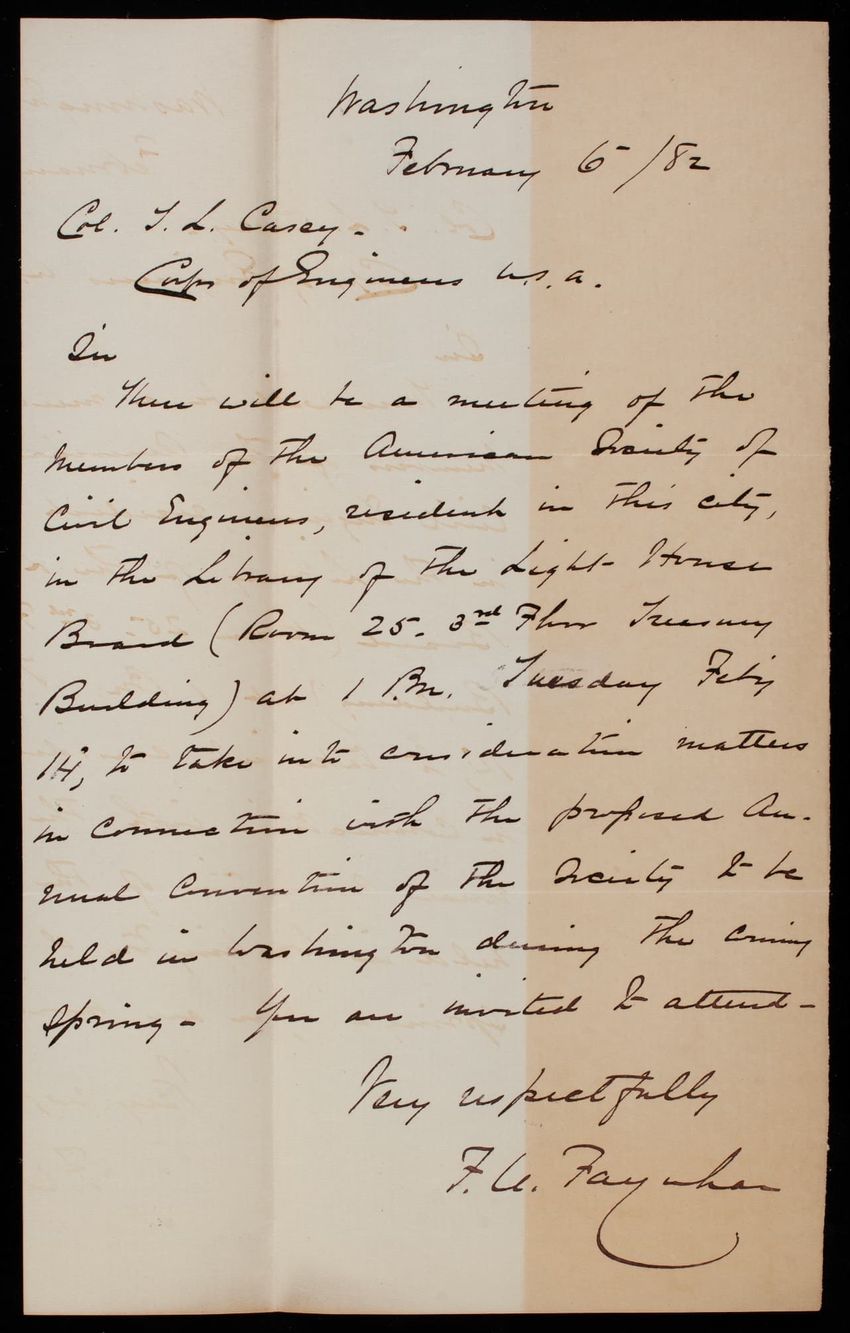 Washington
February 6 /82
Col. T. L. Casey -
Corps of Engineers U.S.A.
Sir
There will be a meeting of the
Members of the American Society of
Civil Engineers, resident in this city,
in the Library of the Light-House
Board (Room 25. 3rd Floor Treasury
Building) at 1 P.M. Tuesday Feb'y
14, to take into consideration matters
in connection with the proposed An-
nual Convention of the Society to be
held in Washington during the coming
Spring - You are invited to attend -
Very respectfully
F. U. Farquhar